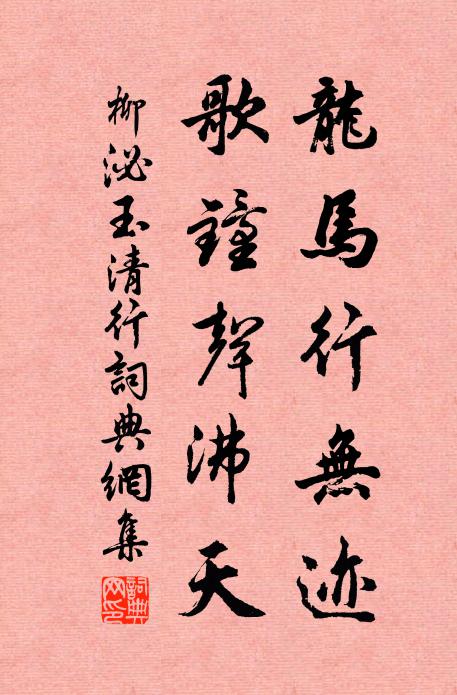 龍馬行無迹
歌鐘聲沸天
柳泌玉清行詞典網集
詞典網印